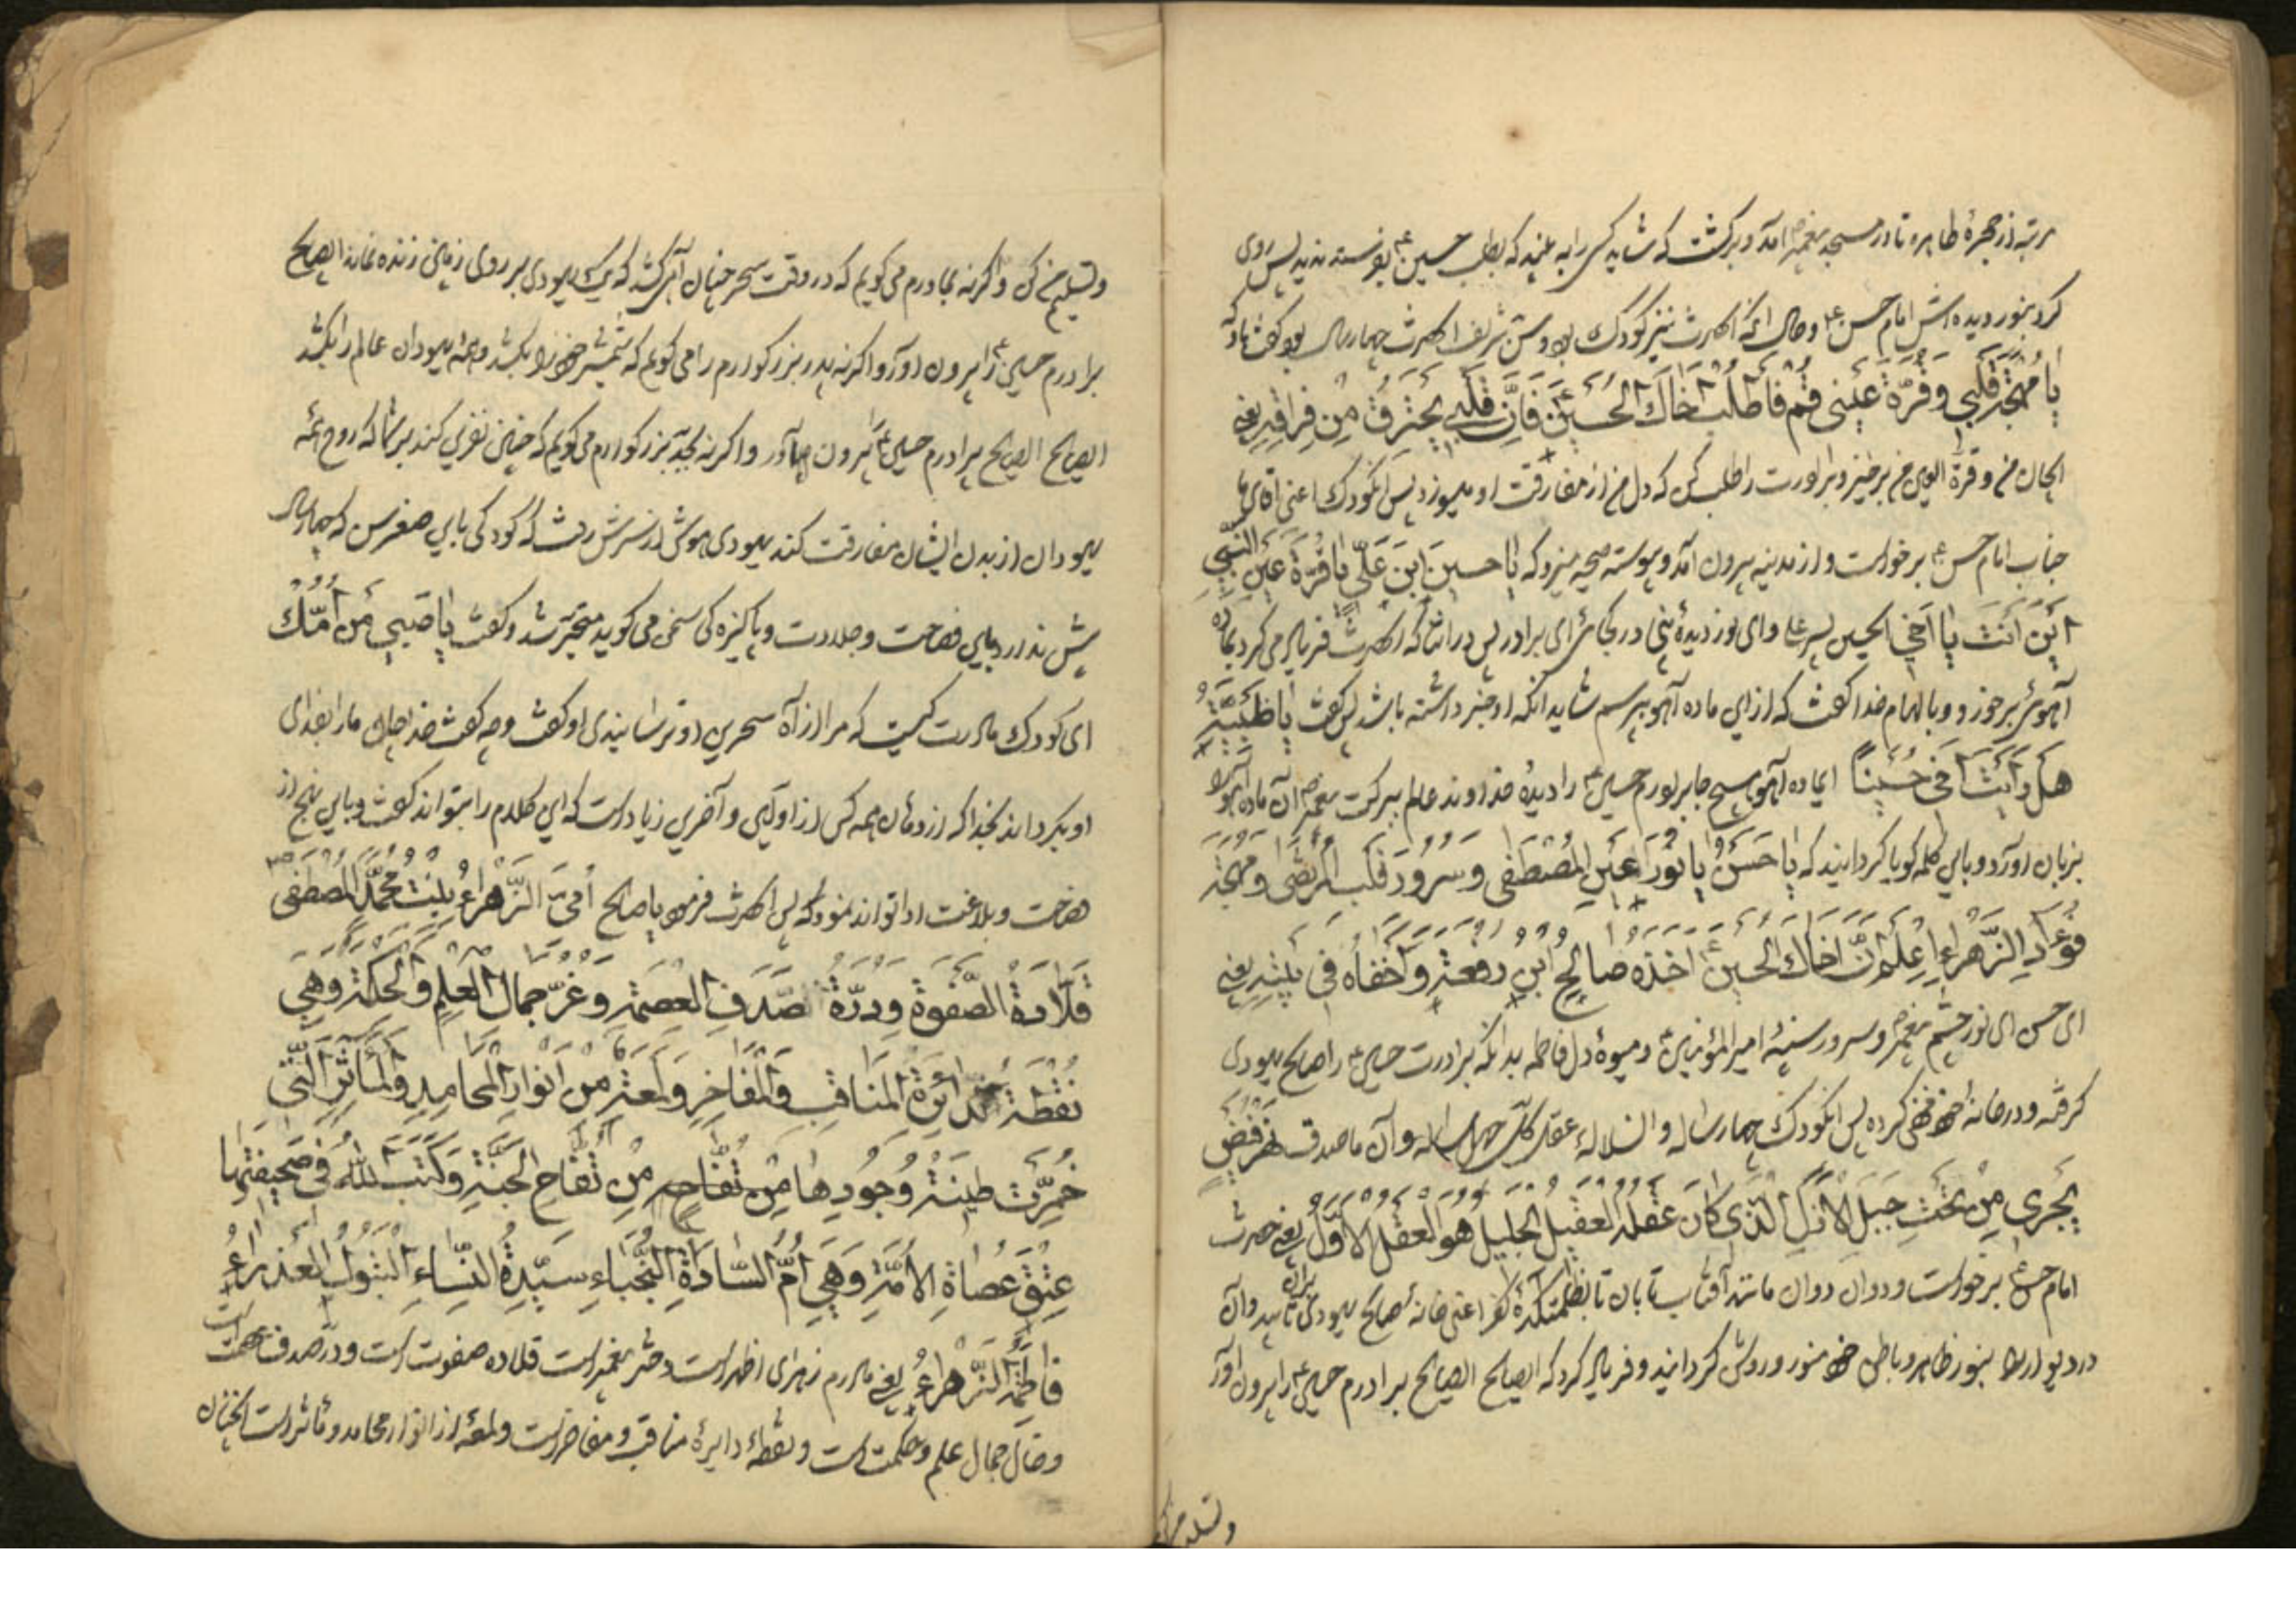 مرتبه از حجرهٔ طاهره تا در مسجد پیغمبر ص آمد و برگشت که شاید کسی را به بیند که بطلب حسین ع بفرستد ندید پس روی
کرد بنور دیده اش امام حسن ع و حال آنکه آنحضرت نیز کودک بود و سن شریف آنحضرت چهار سال بود گفت باو که
یا مُهْجَةَ قَلْبِی وَ قُرَّةَ عَیْنِی قُمْ فَاطْلُبْ اَخَاكَ الْحُسَیْنَ ع فَاِنَّ قَلْبِی یَحْتَرِقُ مِنْ فِراقِهِ یعنی
ایجان من و قرة العین من برخیز و برادرت را طلب کن که دل من از مفارقت او میسوزد پس آن کودک اعنی آقای ما
جناب امام حسن ع برخواست و از مدینه بیرون آمد و پیوسته صیحه میزد که یا حسینَ ابنَ عَلِیّ یا قُرَّةَ عَیْنِ النَّبِیّ
اَیْنَ اَنْتَ یا اَخِی ایحسین پسر علی و ای نور دیدهٔ نبی در کجائی ای برادر پس در اثنا که آنحضرت فریاد می کرد بماده
آهوئی برخورد و بالهام خدا گفت که از این ماده آهو بپرسم شاید آنکه او خبر داشته باشد پس گفت یا ظَبْیَةُ
هَلْ رَاَیْتَ اَخِی حُسَیْناً ایماده آهو هیچ جا برادرم حسین ع را دیدهٔ خداوند عالم ببرکت پیغمبر ص آن ماده آهو را
بزبان آورد و باین کلمه گویا گردانید که یا حَسَنُ یا نُورَ عَیْنِ الْمُصْطَفی وَ سُرُورَ قَلْبِ الْمُرْتَضی وَ مُهْجَةَ
فُؤادِ الزَّهْراءِ اِعْلَمْ اَنَّ اَخاكَ الْحُسَیْنَ ع اَخَذَهُ صالِحُ ابْنُ رقعة وَ اَخْفاهُ فِی بَیْتِهِ یعنی
ای حسن ای نور چشم پیغمبر ص و سرور سینهٔ امیرالمؤمنین ع و میوهٔ دل فاطمه بدانکه برادرت حسین ع را صالح یهودی
گرفته و در خانهٔ خود مخفی کرده پس آن کودک چهار ساله و السلاله عقل کل چهل ساله و آن ماصدق نهر فیض
یَجْرِی مِنْ تَحْتِ جَبَلِ الْاَزَلِ الَّذِی کانَ عَقْلُهُ الْعَقْلُ الْجَلِیلُ هُوَ الْعَقْلُ الْاَوَّلُ یعنی حضرت
امام حسن ع برخواست و دوان دوان مانند آفتاب تابان تا بظلمتکدهٔ کفر اعنی خانهٔ صالح یهودی تابید و آن
در و دیوار را بنور ظاهر و باطن خود منور و روشن گردانید و فریاد کرد که ایصالح ایصالح برادرم حسین ع را بیرون آور
و تسلیم من
و تسلیم من کن و اگر نه بمادرم می گویم که در وقت سحر چنان آهی کشد که یک یهودی بر روی زمین زنده نماند ایصالح
برادرم حسین ع را بیرون آور و اگر نه پدر بزرگوارم را می گویم که شمشیر خود را بکشد و همهٔ یهودان عالم را بکشد
ایصالح ایصالح برادرم حسین ع را بیرون آور و اگر نه بجد بزرگوارم می گویم که چنین نفرین کند بر شما که روح همهٔ
یهودان از بدن ایشان مفارقت کند یهودی هوش از سرش رفت که کودکی باین صغر سن که چهار سال
بیش ندارد باین فصاحت و جلادت و پاکیزه گی سخن می گوید متحیر شد و گفت یا صَبِیُّ مَنْ اُمُّكَ
ای کودک مادرت کیست که مرا از آه سحرین او ترسانیدی او گفت و چه گفت خدا جان مارا بفدای
او بگرداند بخدا که از دهان همه کس از اولین و آخرین زیاد است که این کلام را بتواند گفت و باین نهج از
فصاحت و بلاغت ادا تواند نمود که پس آنحضرت فرمود یا صالح اُمّیَ الزَّهْراءُ بِنْتُ مُحَمَّدٍ الْمُصْطَفی ص
قَلادَةُ الصَّفْوَةِ وَ دُرَّةُ صَدَفِ الْعِصْمَةِ وَ غُرَّةُ جَمالِ الْعِلْمِ وَ الْحِکْمَةِ وَ هِیَ
نُقْطَةُ دائِرَةِ الْمَناقِبِ وَ الْمَفاخِرِ وَ لَمْعَةٌ مِنْ اَنْوارِ الْمَحامِدِ وَ الْمَآثِرِ الَّتِی
خُمِّرَتْ طِینَةُ وُجُودِها مِنْ تُفّاحَةٍ مِنْ تُفّاحِ الْجَنَّةِ وَ کَتَبَ اللّٰهُ فِی صَحِیفَتِها
عِتْقَ عُصاةِ الْاُمَّةِ وَ هِیَ اُمُّ السّادَةِ النُّجَباءِ سَیِّدَةُ النِّساءِ الْبَتُولُ الْعَذْراءُ
فاطِمَةُ الزَّهْراءُ یعنی مادرم زهرای اطهر است دختر پیغمبر است قلاده صفوت است و در صدف عصمت است
و خال جمال علم و حکمت است و نقطهٔ دایرهٔ مناقب و مفاخر است و لمعه از انوار محامد و مآثر است آنچنان